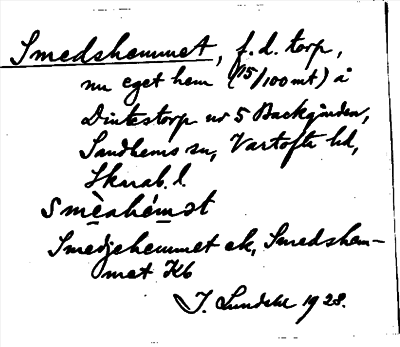 Smedshemmet, f.d. torp,
nu eget hem (15/100 mt) å
Dintestorp nr 5 Backgården,
Sandhems sn, Vartofta hd,
Skarab. l.
smèahémət
Smedjehemmet ek, Smedshem-
met Kb
J. Lundahl 1928.